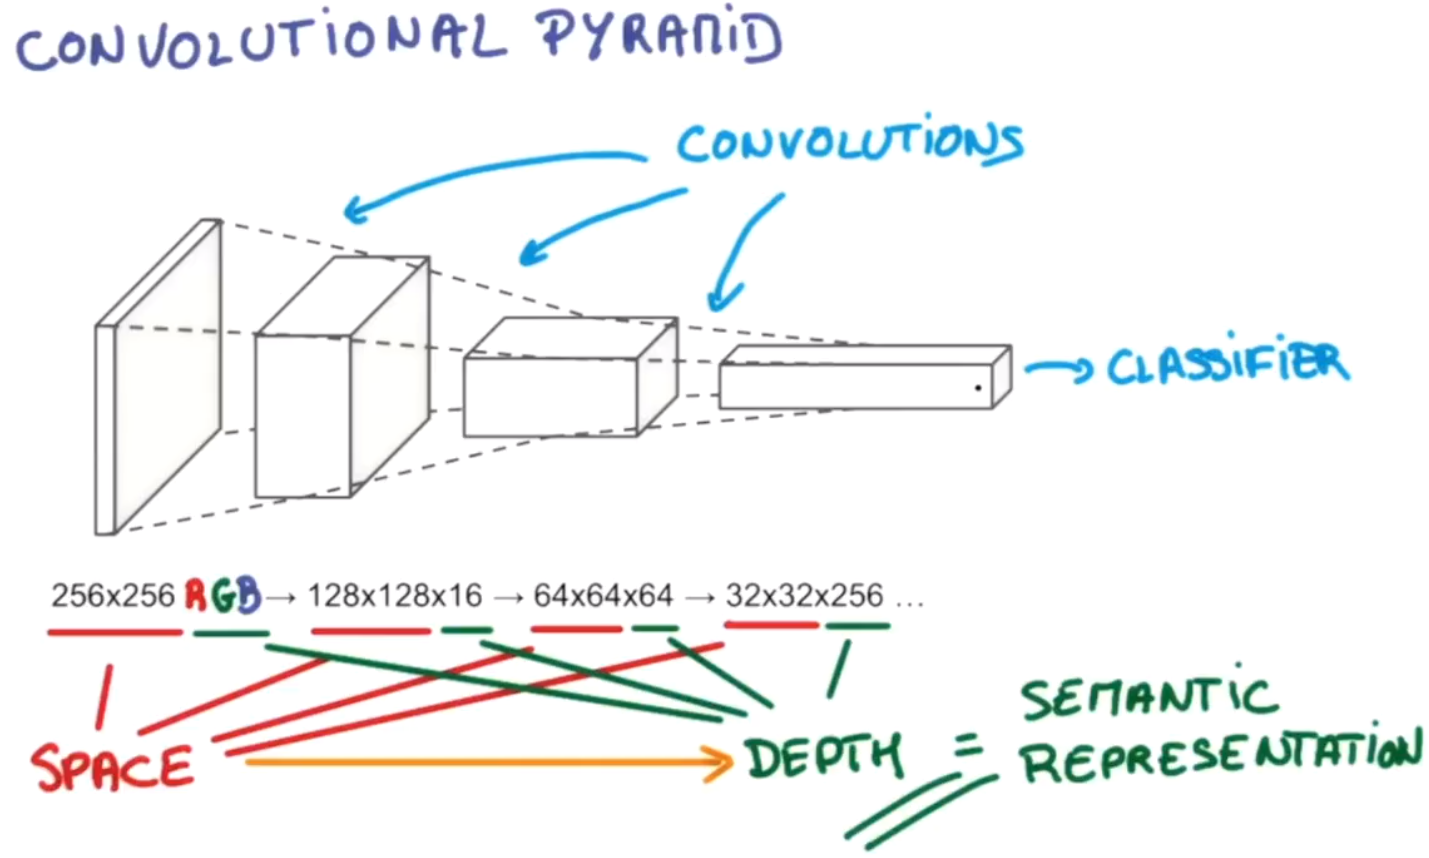 CONVOLUTIONAL PYRAMiD
CONVOLUTiONS
CLASSiFiER
256x256 RGB → 128x128x16 → 64x64x64 → 32x32x256 ...
SPACE → DEPTH = SEMANTiC
REPRESENTATiON